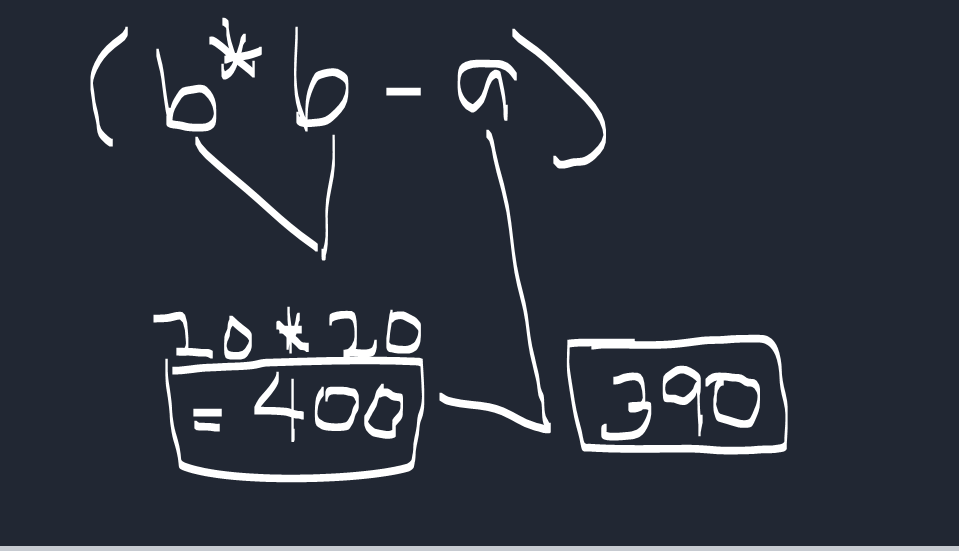 (b*b-a)
20*20
=400
390